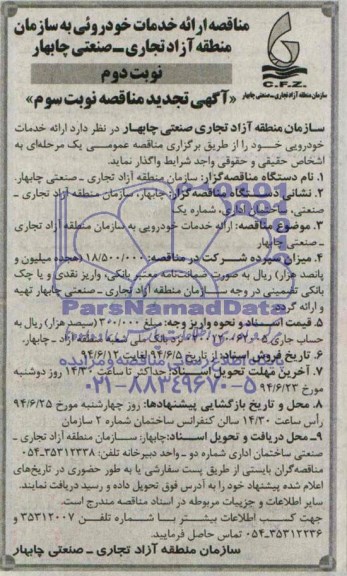 مناقصه ارائه خدمات خودروئی به سازمان
منطقه آزاد تجاری ـ صنعتی چابهار
نوبت دوم
«آگهی تجدید مناقصه نوبت سوم»
C.F.Z.
سازمان منطقه آزاد تجاری ـ صنعتی چابهار
سازمان منطقه آزاد تجاری صنعتی چابهار در نظر دارد ارائه خدمات
خودرویی خود را از طریق برگزاری مناقصه عمومی یک مرحله‌ای به
اشخاص حقیقی و حقوقی واجد شرایط واگذار نماید.
۱. نام دستگاه مناقصه‌گزار: سازمان منطقه آزاد تجاری ـ صنعتی چابهار.
۲. نشانی دستگاه مناقصه‌گزار: چابهار، سازمان منطقه آزاد تجاری ـ
صنعتی، ساختمان اداری، شماره یک
۳. موضوع مناقصه: ارائه خدمات خودرویی به سازمان منطقه آزاد تجاری
ـ صنعتی چابهار
۴. میزان سپرده شرکت در مناقصه: ۱۸/۵۰۰/۰۰۰ (هجده میلیون و
پانصد هزار) ریال به صورت ضمانت‌نامه معتبر بانکی، واریز نقدی و یا چک
بانکی تضمینی در وجه سازمان منطقه آزاد تجاری ـ صنعتی چابهار تهیه
و ارائه گردد.
۵. قیمت اسناد و نحوه واریز وجه: مبلغ ۳۰۰/۰۰۰ (سیصد هزار) ریال به
حساب جاری نزد بانک ملی شعبه منطقه آزاد ـ چابهار.
۶. تاریخ فروش اسناد: از تاریخ ۹۴/۶/۵ لغایت ۹۴/۶/۱۲
۷. آخرین مهلت تحویل اسناد: حداکثر تا ساعت ۱۴/۳۰ روز دوشنبه
مورخ ۹۴/۶/۲۳
۸. محل و تاریخ بازگشایی پیشنهادها: روز چهارشنبه مورخ ۹۴/۶/۲۵
رأس ساعت ۱۴/۳۰ سالن کنفرانس ساختمان شماره ۲ سازمان
۹ـ محل دریافت و تحویل اسناد: چابهار: سازمان منطقه آزاد تجاری ـ
صنعتی ساختمان اداری شماره دو ـ واحد دبیرخانه تلفن: ۳۵۳۱۲۳۳۸ـ۰۵۴
مناقصه‌گران بایستی از طریق پست سفارشی یا به طور حضوری در تاریخ‌های
اعلام شده پیشنهاد خود را به آدرس فوق تحویل داده و رسید دریافت نمایند.
سایر اطلاعات و جزییات مربوطه در اسناد مناقصه مندرج است.
جهت کسب اطلاعات بیشتر با شماره تلفن ۳۵۳۱۲۰۰۷ و
۳۵۳۱۲۲۳۶ـ۰۵۴ تماس حاصل فرمایید.
سازمان منطقه آزاد تجاری ـ صنعتی چابهار
ParsNamadData
۰۲۱-۸۸۳۴۹۶۷۰-۵